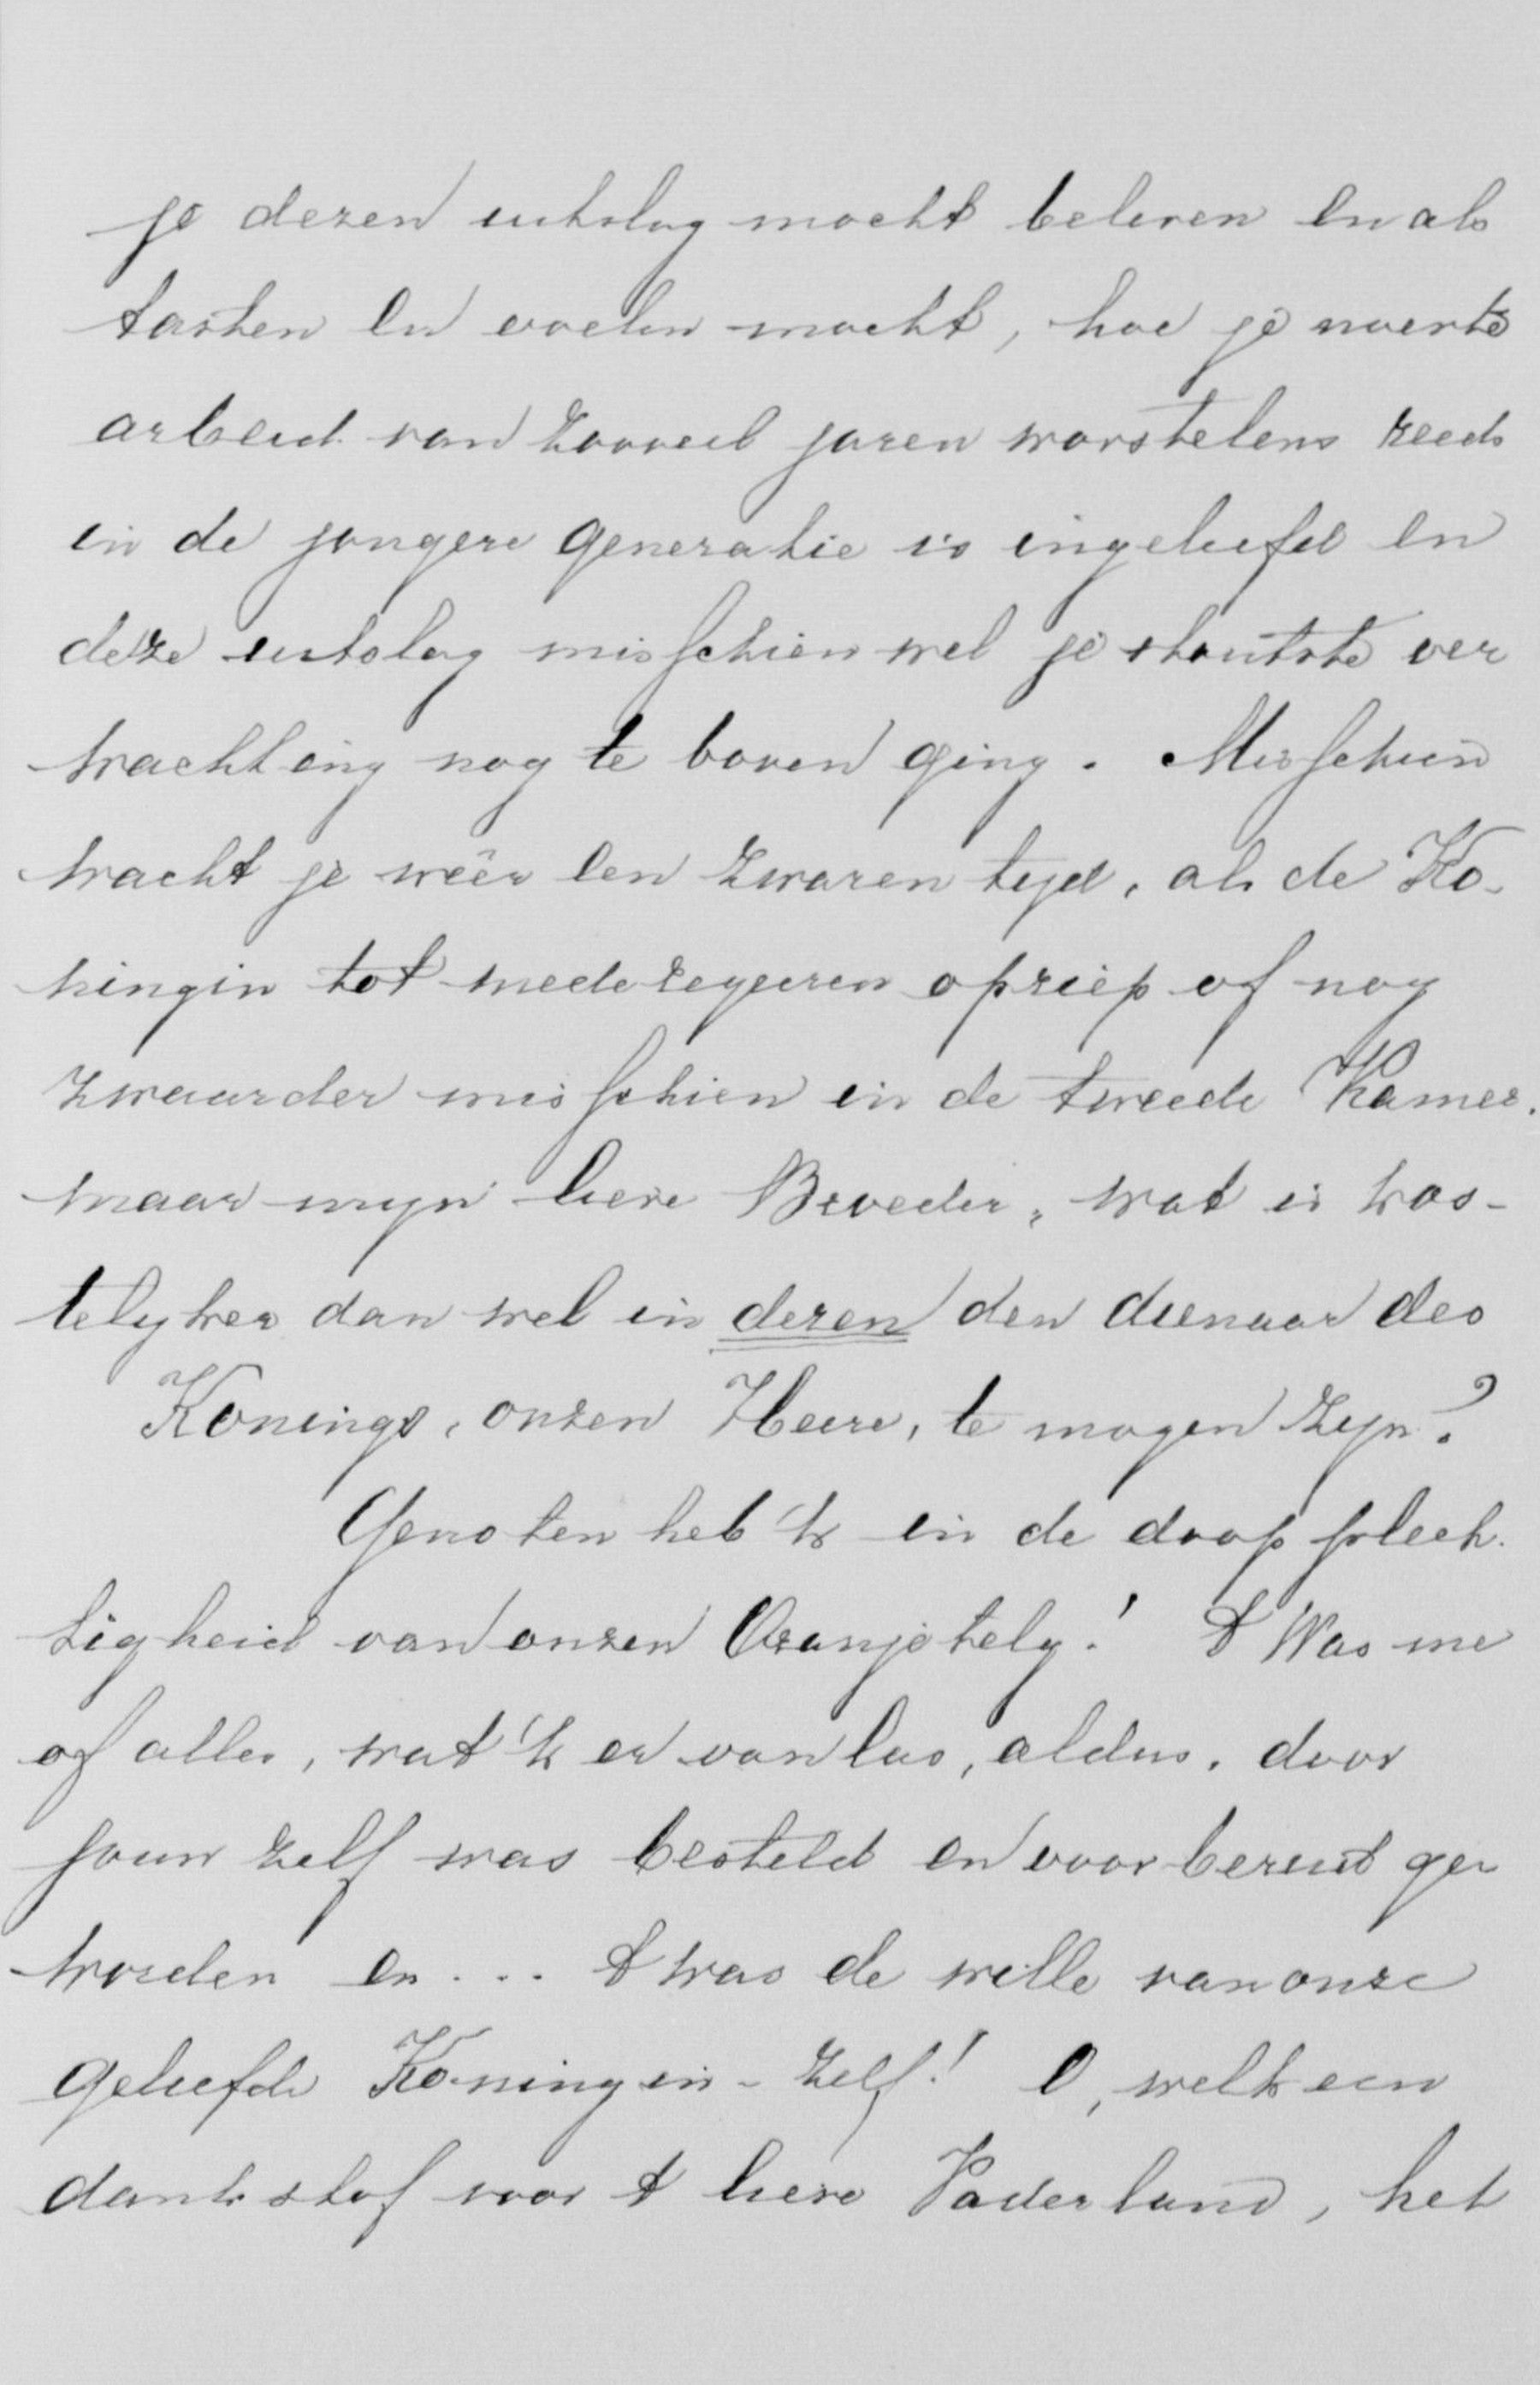 je dezen uitslag mocht beleven en als
tasten en voelen mocht, hoe je noeste
arbeid van zooveel jaren worstelens reeds
in de jongere generatie is ingeleefd en
deze uitslag misschien wel je stoutste ver
wachting nog te boven ging. Misschien
wacht je weêr een zwaren tyd, als de Ko-
ningin tot mederegeeren opriep of nog
zwaarder misschien in de tweede Kamer.
maar myn lieve Broeder, wat is kos-
telyker dan wel in dezen den dienaar des
Konings, onzen Heere, te mogen zyn?
Genoten heb 'k in de doop plech.
tigheid van onzen Oranjetelg! 't Was me
of alles, wat 'k er van las, aldus, door
jouw zelf was besteld en voorbereid ge
worden en ... 't was de wille van onze
geliefde Koningin-zelf! O, welk een
dankstof voor 't lieve Vaderland, het